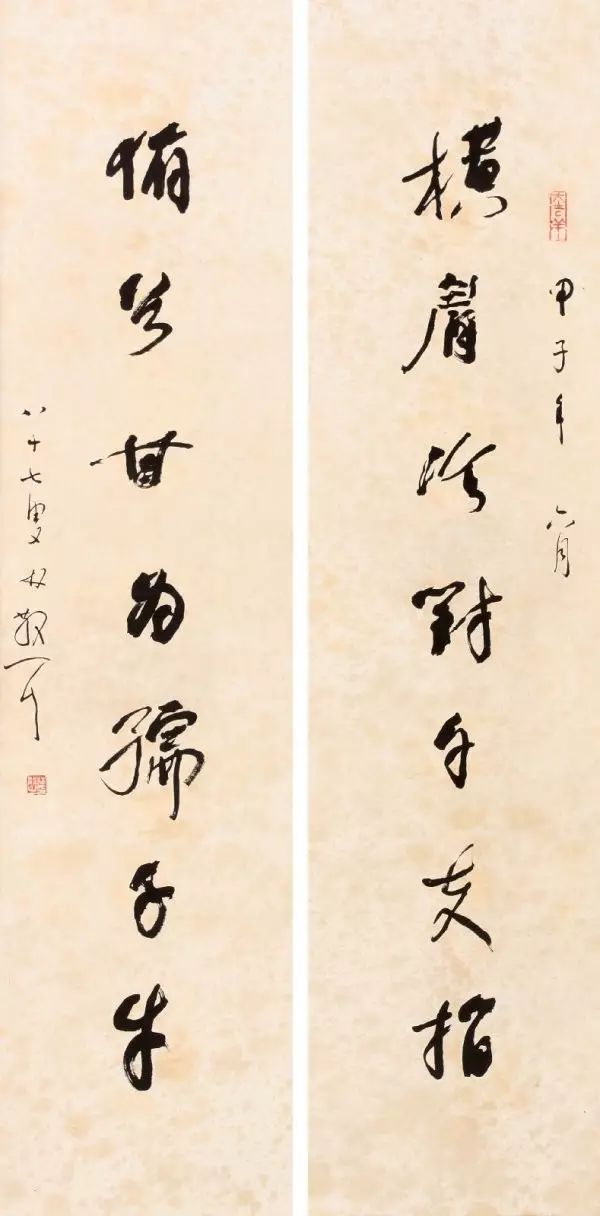 大吉羊
甲子年六月
橫眉冷對千夫指
俯首甘為孺子牛
八十七叟林散耳